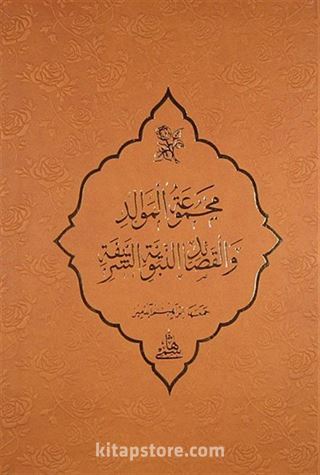 مجموعة الموالد
والقصائد النبوية الشريفة
جمعها
هاشمي
kitapstore.com